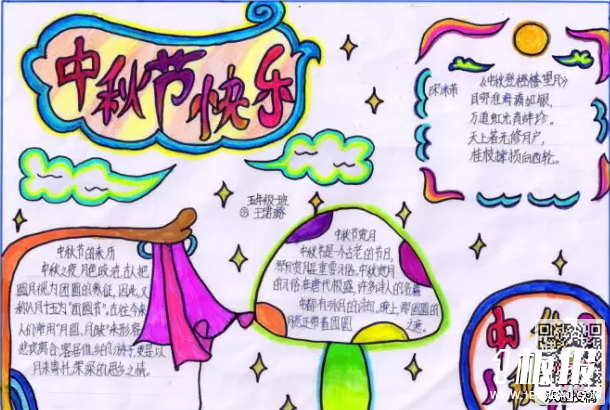 中秋节快乐
宋 米芾
《中秋登楼望月》
目穷淮海满如银,
万道虹光育蚌珍。
天上若无修月户,
桂枝撑损向西轮。
五年级一班
中秋节的来历
中秋之夜,月色皎洁,古人把
圆月视为团圆的象征,因此,又
称八月十五为“团圆节”。古往今来
人们常用“月圆、月缺”来形容
悲欢离合,客居他乡的游子,更是以
月来寄托深深的思乡之情。
中秋节赏月
中秋节是一个古老的节日,
祭月赏月是重要习俗。中秋赏月
的习俗在唐代极盛,许多诗人的名篇
中都有咏月的诗句。
中
板报
欢迎投稿